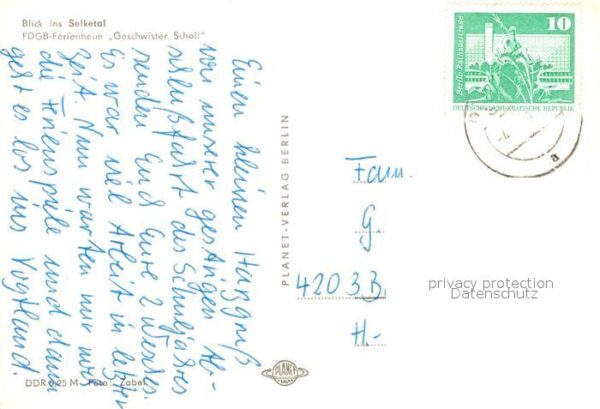 Blick ins Selketal
FDGB-Ferienheim „Geschwister Scholl"
Einen kleinen Harzgruß
von unserer gestrigen Ab-
schlußfahrt des Schuljahres
senden Euch Eure 2 Werdes.
Es war viel Arbeit in letzter
Zeit. Nun warten nur noch
die Ferienspiele und dann
geht es los ins Vogtland.
DDR 0,25 M Foto: Zabel
PLANET-VERLAG BERLIN
PLANET
VERLAG
Berlin, Rathausstraße
10
DEUTSCHE DEMOKRATISCHE REPUBLIK
a
Fam.
G.
4203 B.
H.-
privacy protection
Datenschutz